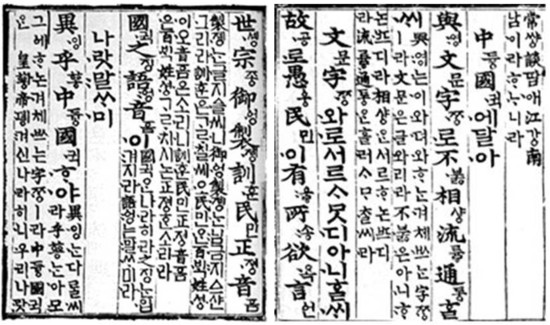 世솅宗종御엉製졩訓훈民민正졍音ᅙᅳᆷ
製졩ᄂᆞᆫ글지ᅀᅳᆯ씨니御엉製졩ᄂᆞᆫ님금지ᅀᅳ샨
그리라訓훈은ᄀᆞᄅᆞ칠씨오民민ᄋᆞᆫ百ᄇᆡᆨ姓셩
이오音ᅙᅳᆷ은소리니訓훈民민正졍音ᅙᅳᆷ
은百ᄇᆡᆨ姓셩ᄀᆞᄅᆞ치시논正졍ᄒᆞᆫ소리라
國귁之징語ᅌᅥᆼ音ᅙᅳᆷ이
國귁ᄋᆞᆫ나라히라之징ᄂᆞᆫ입
겨지라語ᅌᅥᆼ는말ᄊᆞ미라
나랏말ᄊᆞ미
異잉乎ᅘᅩᆼ中듕國귁ᄒᆞ야
異잉ᄂᆞᆫ다ᄅᆞᆯ씨라乎ᅘᅩᆼᄂᆞᆫ아모
그ᅌᅦᄒᆞ논겨체ᄡᅳ는字ᄍᆞᆼㅣ라中듕國귁
ᄋᆞᆫ皇ᅘᅪᆼ帝뎽겨신나라히니우리나랏
常쌍談땀애江강南
남이라ᄒᆞᄂᆞ니라
中듕國귁에달아
與영文문字ᄍᆞᆼ로不불相샹流륳通통ᄒᆞᆯ
ᄊᆡ
與영는이와뎌와ᄒᆞ는겨체ᄡᅳ는字ᄍᆞᆼ
ㅣ라文문은글와리라不불은아니ᄒᆞ
논ᄠᅳ디라相샹ᄋᆞᆫ서르ᄒᆞ논ᄠᅳ디
라流륳通통ᄋᆞᆫ흘러ᄉᆞᄆᆞᄎᆞᆯ씨라
文문字ᄍᆞᆼ와로서르ᄉᆞᄆᆞᆺ디아니ᄒᆞᆯᄊᆡ
故공로愚웅民민이有ᅌᅮᇢ所송欲욕言언